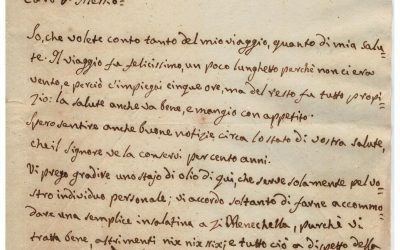 Caro D. Memmo=
So, che volete conto tanto del mio viaggio, quanto di mia salu=
te. Il viaggio fu felicissimo, un poco lunghetto perchè non ci era
vento, e perciò c'impiegai cinque ore, ma del resto fu tutto propi=
zio: la salute anche va bene, e mangio con appetito.
Spero sentire anche buone notizie circa lo stato di vostra salute,
che il Signore ve la conservi per cento anni.
Vi prego gradire uno stajo di olio di qui, che serve solamente pel vo=
stro individuo personale; vi accordo soltanto di farne accommo=
dare una semplice insalatina a Zi Menechella, purchè vi
tratta bene, altrimenti nix nix nix; e tutto ciò a dispetto della